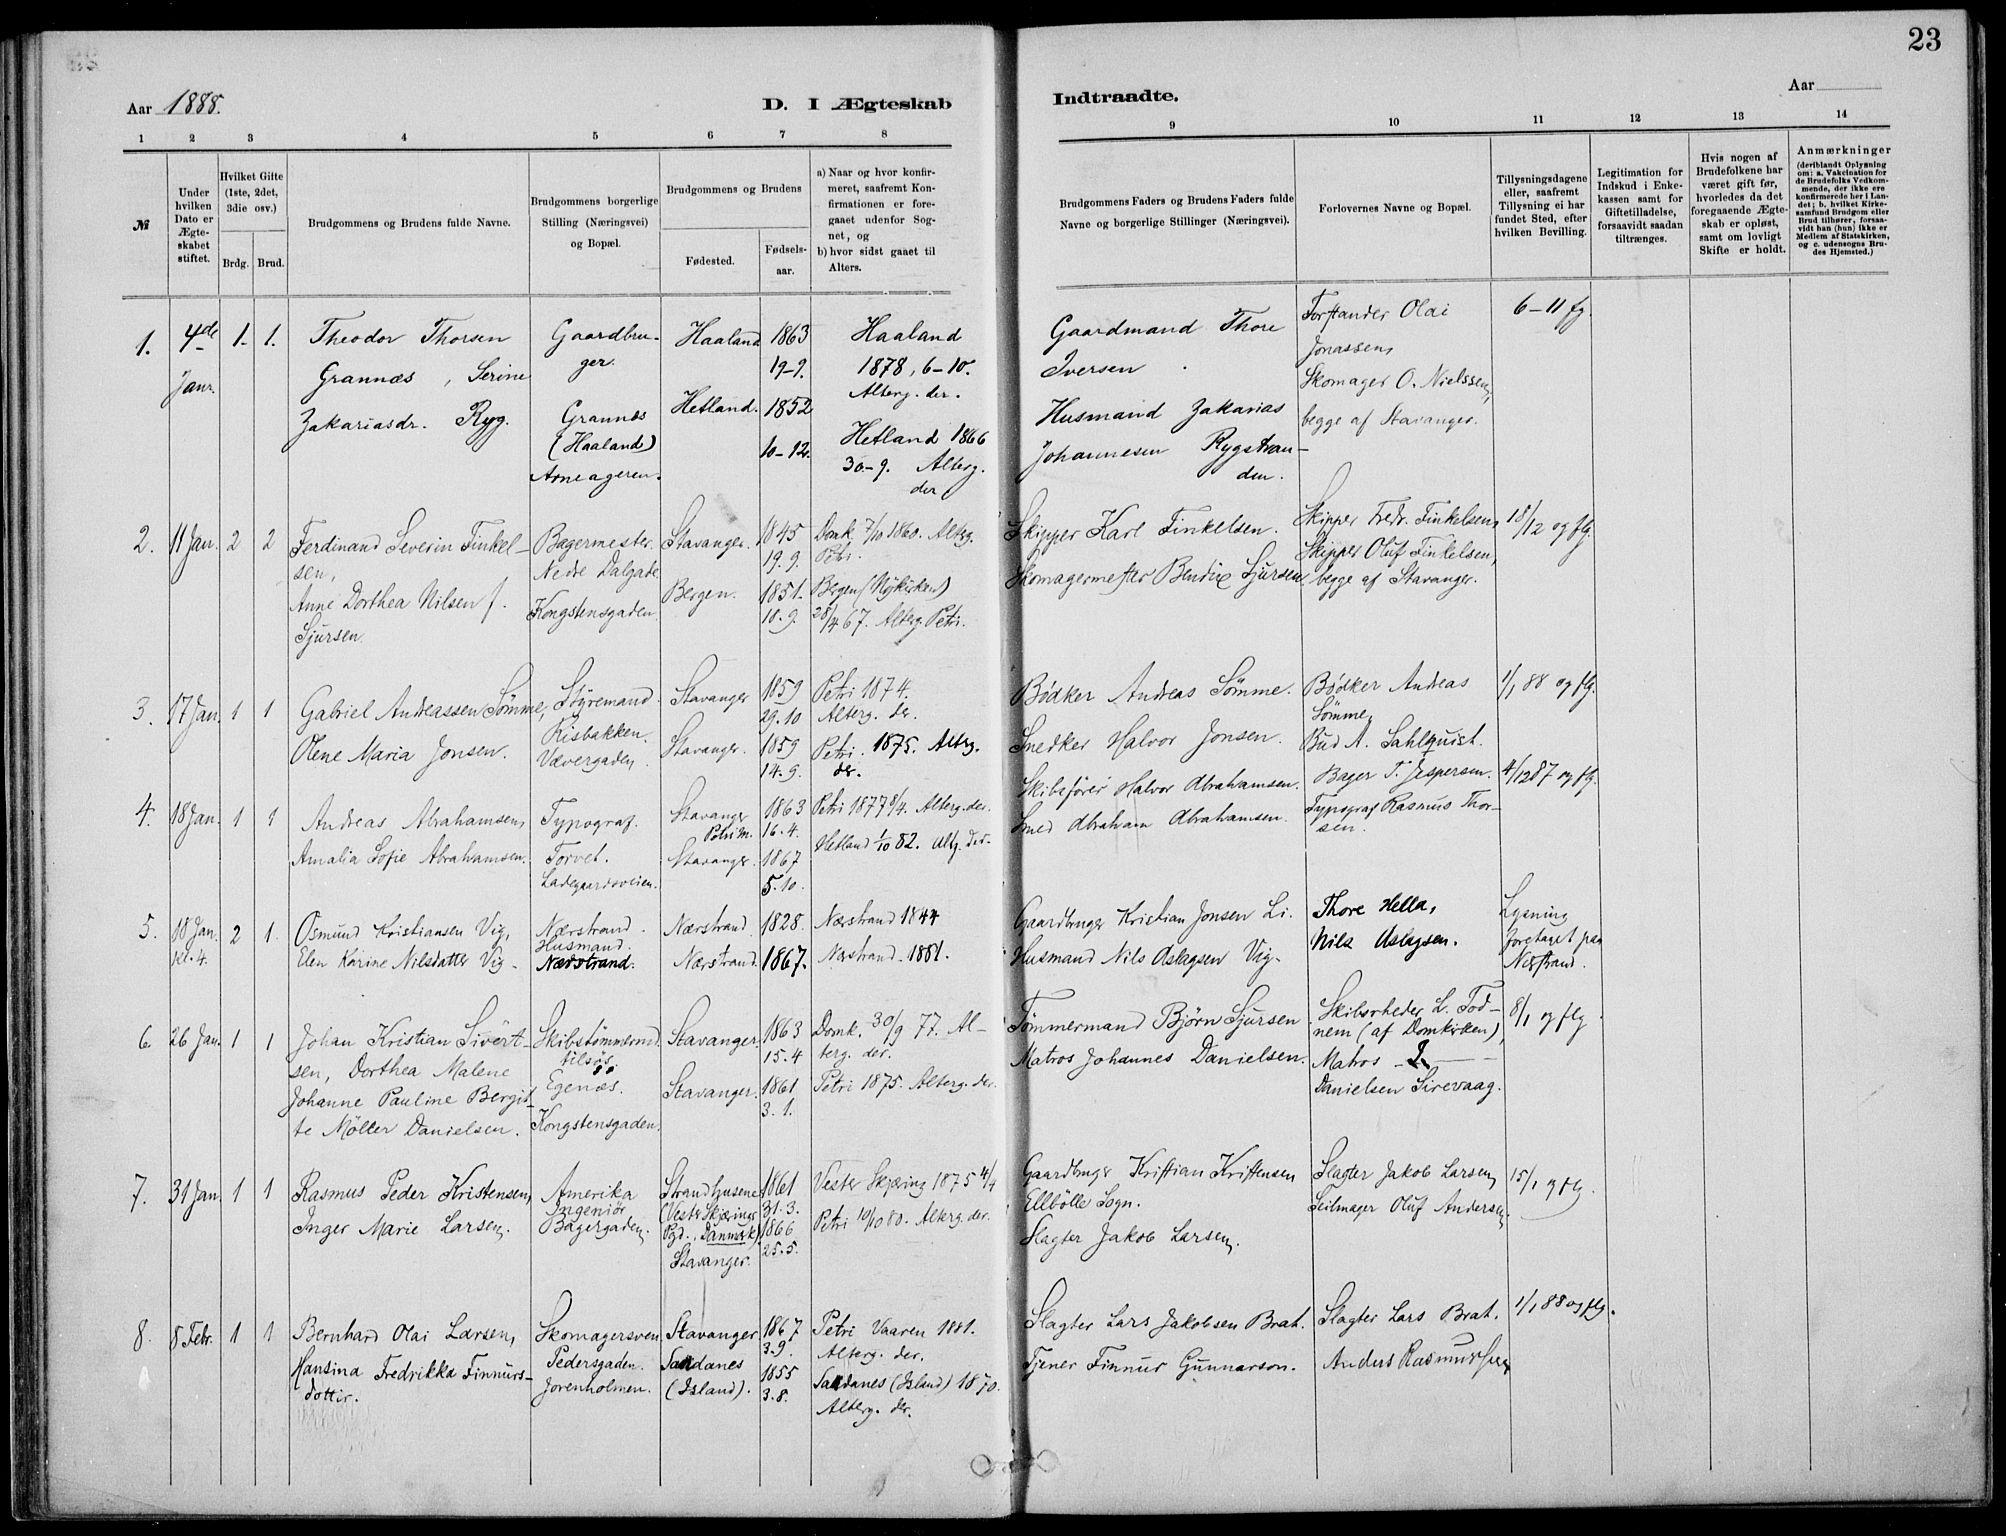 23
Aar 1888.
D. I Ægteskab
Indtraadte.
Aar
1 2 3 4 5 6 7 8 9 10 11 12 13 14
№
Under hvilken Dato er Ægteskabet stiftet.
Hvilket Gifte (1ste, 2det, 3die osv.)
Brdg. Brud.
Brudgommens og Brudens fulde Navne.
Brudgommens borgerlige Stilling (Næringsvei) og Bopæl.
Brudgommens og Brudens
Fødested.
Fødselsaar.
a) Naar og hvor konfirmeret, saafremt Konfirmationen er foregaaet udenfor Sognet, og
b) hvor sidst gaaet til Alters.
Brudgommens Faders og Brudens Faders fulde Navne og borgerlige Stillinger (Næringsvei).
Forlovernes Navne og Bopæl.
Tillysningsdagene eller, saafremt Tillysning ei har fundet Sted, efter hvilken Bevilling.
Legitimation for Indskud i Enkekassen samt for Giftetilladelse, forsaavidt saadan tiltrænges.
Hvis nogen af Brudefolkene har været gift før, hvorledes da det foregaaende Ægteskab er opløst, samt om lovligt Skifte er holdt.
Anmærkninger
(deriblandt Oplysning om: a. Vakcination for de Brudefolks Vedkommende, der ikke ere konfirmerede her i Landet; b. hvilket Kirkesamfund Brudgom eller Brud tilhører, forsaavidt han (hun) ikke er Medlem af Statskirken, og c. udensogns Brudes Hjemsted.)
1. 4de Janr. 1. 1.
Theodor Thorsen
Grannæs, Serine
Zakariasdr. Ryg.
Gaardbruger.
Grannæs
(Haaland)
Arneageren.
Haaland
Hetland.
1863
19-9.
1852
10-12.
Haaland
1878, 6-10.
Alterg. der.
Hetland 1866
30-9. Alterg.
der
Gaardmand Thore
Iversen
Husmand Zakarias
Johannesen Rygstranden.
Forstander Olai
Jonassen,
Skomager O. Nielssen,
begge af Stavanger.
6-11 fg.
2. 11 Jan. 2 2
Ferdinand Severin Finkelsen,
Anne Dorthea Nilsen f.
Sjursen.
Bagermester.
Nedre Dalgade
Kongstensgaden
Stavanger.
Bergen.
1845
19.9.
1851.
18.9.
Domk. 7/10 1860. Alterg.
Petri.
Bergen (Nykirken)
28/4 67. Alterg Petri.
Skipper Karl Finkelsen.
Skomagermester Bendix Sjursen
Skipper Fredr. Finkelsen,
Skipper Oluf Finkelsen,
begge af Stavanger.
18/12 og flg.
3. 17 Jan. 1 1
Gabriel Andreassen Sömme,
Olene Maria Jonsen.
Styremand.
Risbakken.
Vævergaden.
Stavanger
Stavanger.
1859
29.10
1859
14.9.
Petri 1874.
Alterg. der.
Petri. 1875. Alterg.
der.
Bödker Andreas Sömme.
Snedker Halvor Jonsen.
Bödker Andreas
Sömme,
Bud A. Sahlquist.
1/1 88 og flg.
4. 18 Jan. 1 1
Andreas Abrahamsen,
Amalia Sofie Abrahamsen.
Typograf.
Torvet.
Ladegaardsveien.
Stavanger
Petri M.
Stavanger.
1863
16.4.
1867
5.10.
Petri 1877 8/4. Alterg. der.
Hetland 1/10 82. Altg. der.
Skibsförer Halvor Abrahamsen.
Smed Abraham Abrahamsen.
Bager T. Jespersen.
Typograf Rasmus Thorsen.
4/12 87 og flg.
5. 18 Jan. kl. 4. 2 1.
Osmund Kristiansen Vig,
Elen Karine Nilsdatter Vig.
Nærstrand.
Husmand.
Nærstrand.
Nærstrand.
Nærstrand.
1828.
1867.
Nærstrand 1844
Nærstrand. 1881.
Gaardbruger Kristian Jonsen Li.
Husmand Nils Aslagsen Vig.
Thore Hella,
Nils Aslagsen.
Lysning
foretaget paa
Nerstrand.
6. 26 Jan. 1 1
Johan Kristian Sivertsen,
Dorthea Malene
Johanne Pauline Bergitte
Möller Danielsen.
Skibstömmermd
tilsös
Egenæs.
Kongstensgaden.
Stavanger
Stavanger.
1863
15.4
1861
3.1.
Domk. 30/9 77. Alterg. der.
Petri 1875. Alterg. der.
Tömmermand Björn Sjursen
Matros Johannes Danielsen.
Skibsrheder L. Todnem
(af Domkirken),
Matros
Danielsen Sirevaag.
8/1 og flg
7. 31 Jan. 1 1
Rasmus Peder Kristensen,
Inger Marie Larsen.
Amerika
Ingeniör
Bagergaden.
Strandhusene
(Vester Skjæring
Pgd., Danmark)
Stavanger.
1861
31.3.
1866
25.5.
Vester Skjæring 1875 4/4
Petri 10/10 80. Alterg. der.
Gaardbruger Kristian Kristensen
Ellbölle Sogn.
Slagter Jakob Larsen.
Slagter Jakob Larsen,
Seilmager Oluf Andersen.
15/1 og flg.
8. 8 Febr. 1 1
Bernhard Olai Larsen,
Hansina Fredrikka Finnursdottir.
Skomagersven
Pedersgaden.
Jorenholmen.
Stavanger
Saudanes
(Island).
1867
3.9.
1855
3.8.
Petri Vaaren 1881.
Alterg. der.
Saudanes (Island) 1870.
Alterg. der.
Slagter Lars Jakobsen Brat.
Tjener Finnur Gunnarson.
Slagter Lars Brat.
Anders Rasmussen
1/1 88 og flg.